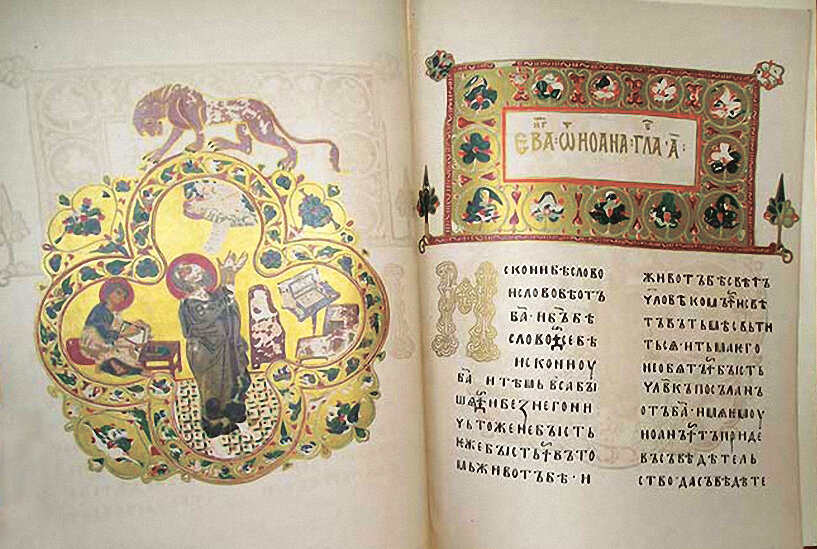 ЄВАⷢ҇ · Ѿ ИОАНА · ГЛАⷡ҇ · А҃ :
ИСКОНИ БѢ СЛОВО
И СЛОВО БѢ ОТЪ
Б҃А · И Б҃Ъ БѢ
СЛОВО СЕ БѢ
ИСКОНИ ОУ
Б҃А И ТѢМЬ ВЬСА БЫ
ШѦ И БЕЗ НЕГО НИ
ЧЬТОЖЕ НЕ БЫСТЬ
ѤЖЕ БЫСТЬ ВЪ ТО
МЬ ЖИВОТЪ БѢ · И
ЖИВОТЪ БѢ СВѢТЪ
ЧЛОВѢКОМЪ И СВѢ
ТЪ ВЪ ТЬМѢ СВЬТИ
ТЬСѦ · И ТЬМА ѤГО
НЕ ОБѦТЪ БЫСТЬ
ЧЛ҃ВКЪ ПОСЪЛАНЪ
ОТЪ Б҃А · ИМѦ ѤМОУ
ИОАНЪ ТЪ ПРИДЕ
ВЪ СЪВѢДѢТЕЛЬ
СТВО ДА СЪВѢДѢТЕ